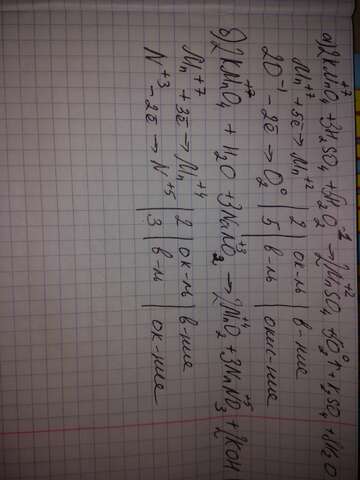 а) 2KMnO₄⁺⁷ + 3H₂SO₄ + 5H₂O₂⁻¹ → 2MnSO₄⁺² + 5O₂⁰↑ + K₂SO₄ + 8H₂O
Mn⁺⁷ + 5ē → Mn⁺² | 2 | ок-ль | в-ние
2O⁻¹ - 2ē → O₂⁰ | 5 | в-ль | окис-ние
б) 2KMnO₄⁺⁷ + H₂O + 3NaNO₂⁺³ → 2MnO₂⁺⁴ + 3NaNO₃⁺⁵ + 2KOH
Mn⁺⁷ + 3ē → Mn⁺⁴ | 2 | ок-ль | в-ние
N⁺³ - 2ē → N⁺⁵ | 3 | в-ль | ок-ние